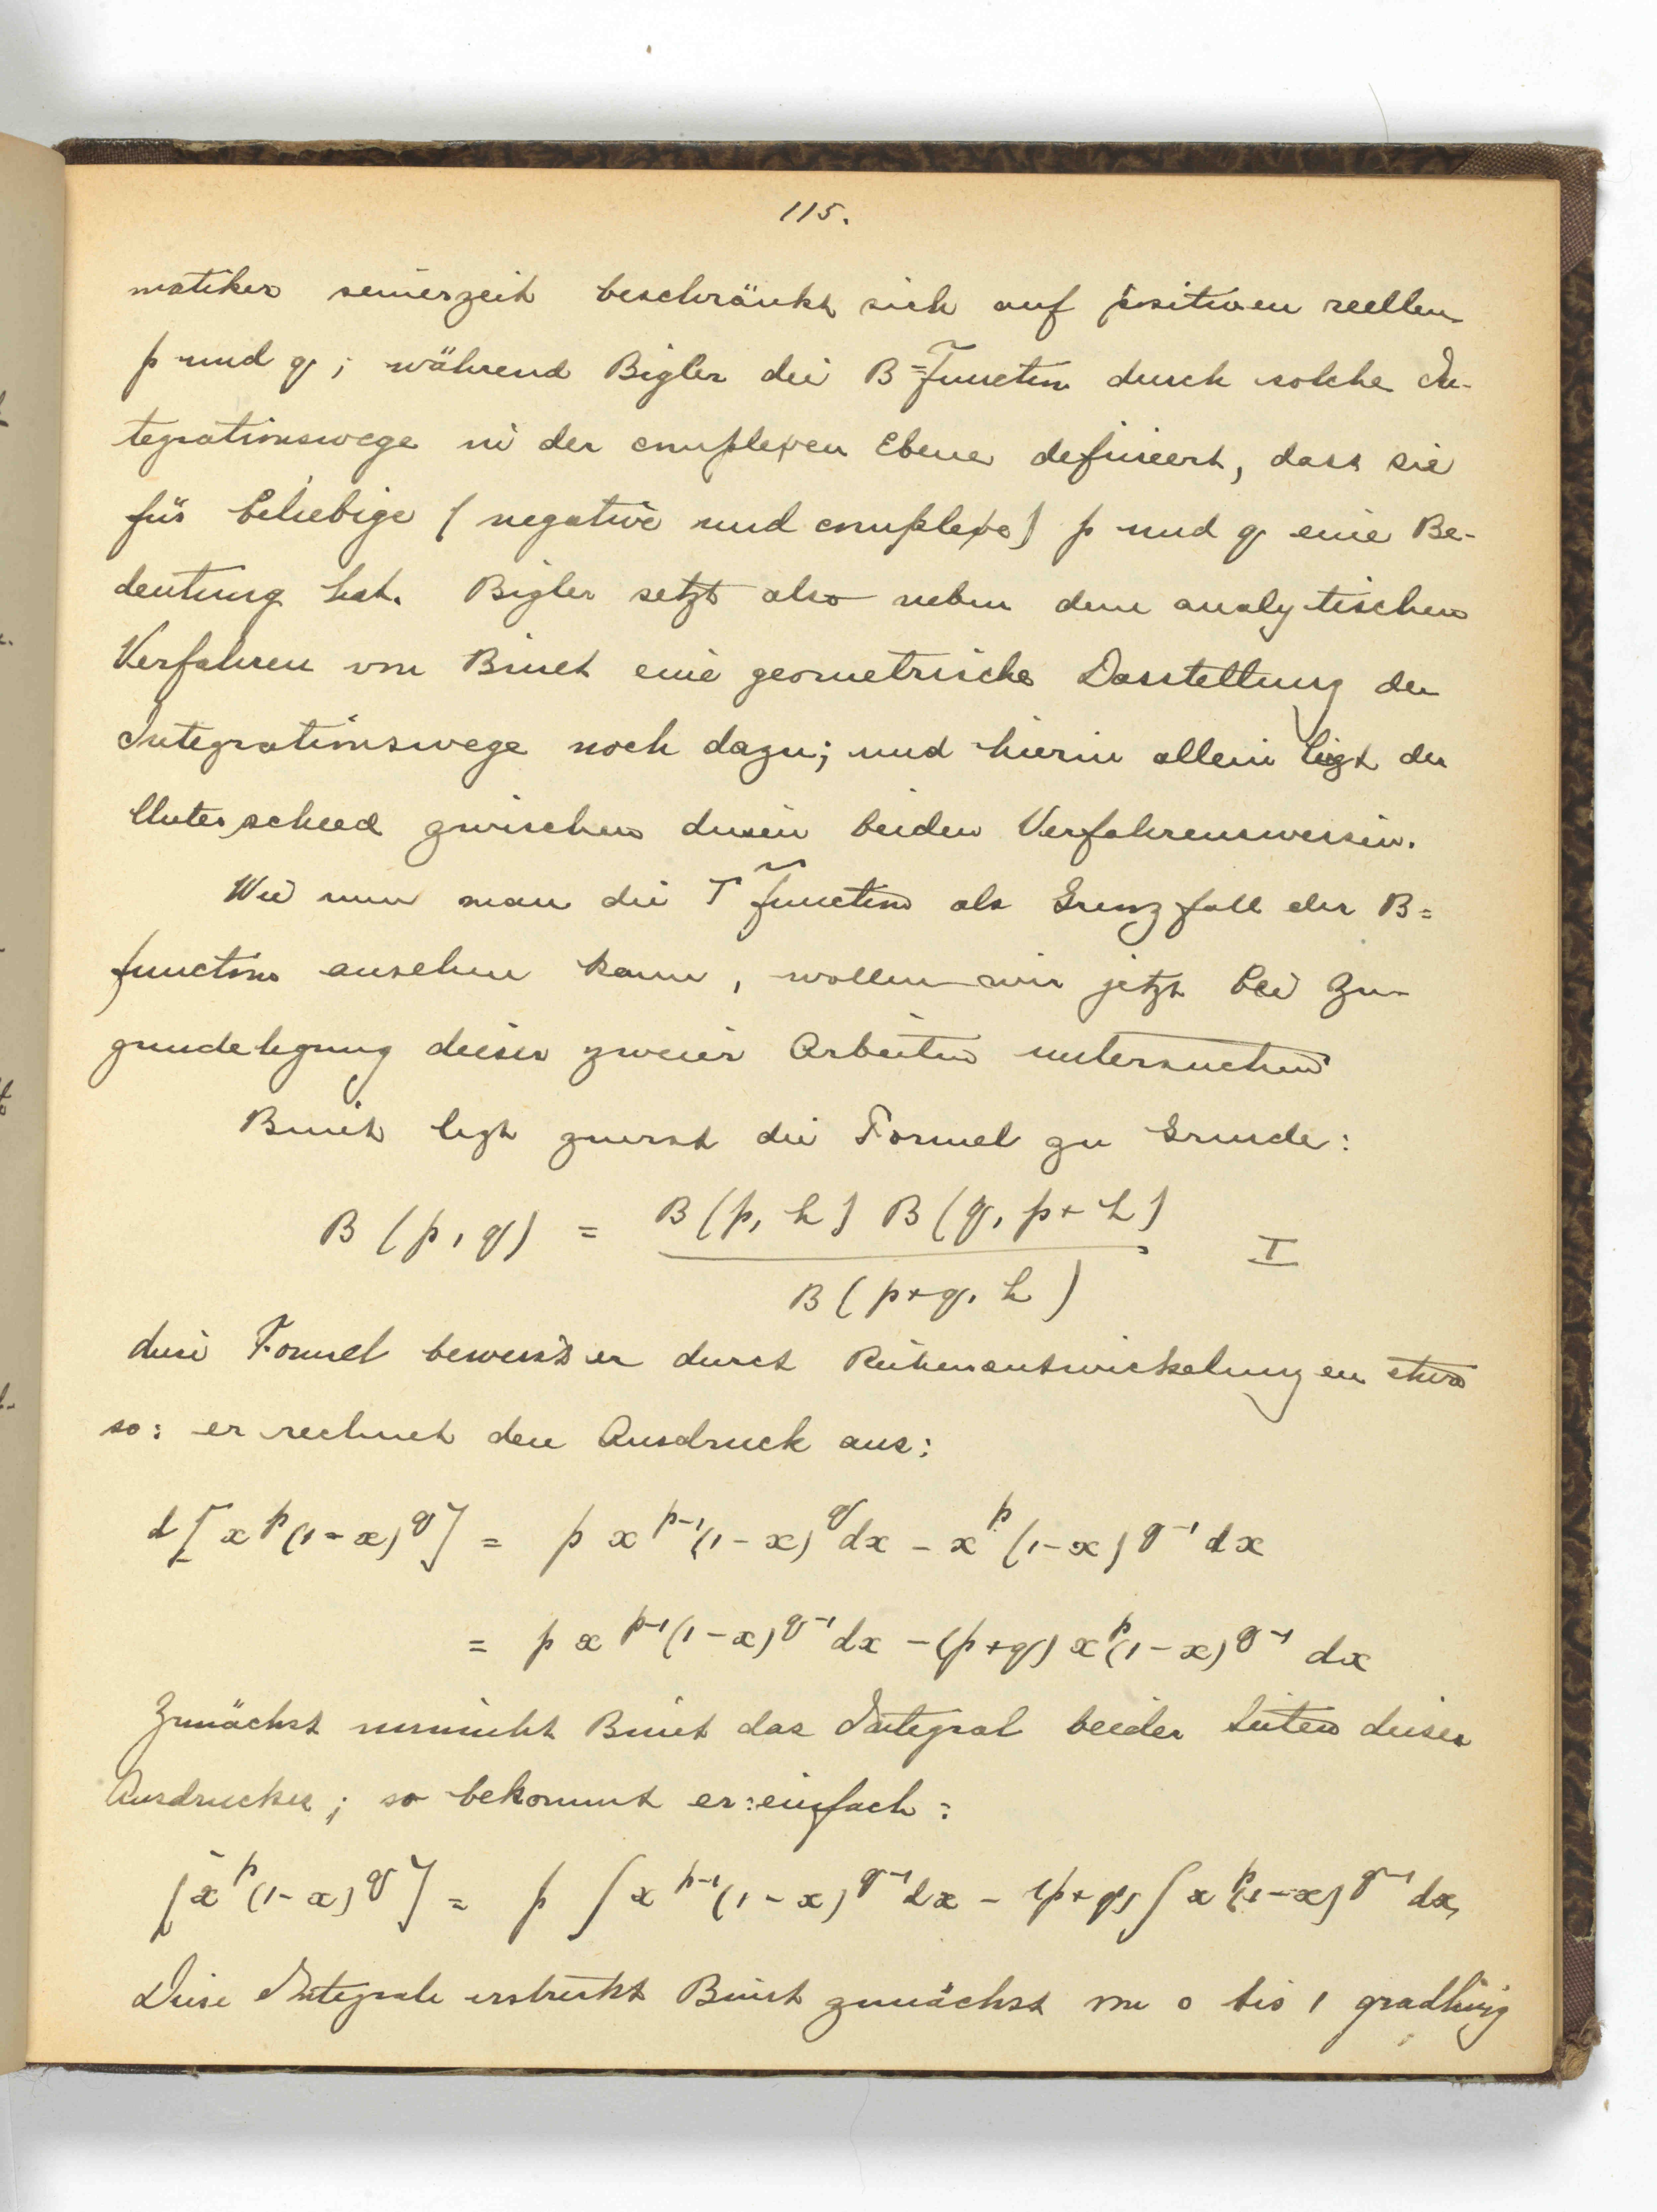 115.
matiker seinerzeit beschränkt sich auf positiven reellen
p und q; während Bigler die B=Function durch solche In-
tegrationswege in der complexen Ebene definiert, dass sie
für beliebige (negative und complexe) p und q eine Be-
deutung hat. Bigler setzt also neben dem analytischen
Verfahren von Binet eine geometrische Darstellung der
Integrationswege noch dazu; und hierin allein liegt der
Unterschied zwischen diesen beiden Verfahrensweisen.
Wie nun man die Γ function als Grenzfall der B=
function ansehen kann, wollen wir jetzt bei Zu-
grundelegung dieser zweier Arbeiten untersuchen
Binet legt zuerst die Formel zu Grunde:
B (p, q) = B(p, h) B(q, p+h) / B(p+q, h) I
diese Formel beweist er durch Reihenentwickelungen etwa
so: er rechnet den Ausdruck aus:
d[x^p (1-x)^q] = p x^{p-1} (1-x)^q dx - x^p (1-x)^{q-1} dx
= p x^{p-1} (1-x)^{q-1} dx - (p+q) x^p (1-x)^{q-1} dx
Zunächst nimmt Binet das Integral beider Seiten dieses
Ausdruckes; so bekommt er: einfach:
[x^p (1-x)^q] = p ∫ x^{p-1} (1-x)^{q-1} dx - (p+q) ∫ x^p (1-x)^{q-1} dx,
Diese Integrale erstreckt Binet zunächst von 0 bis 1 gradlinig